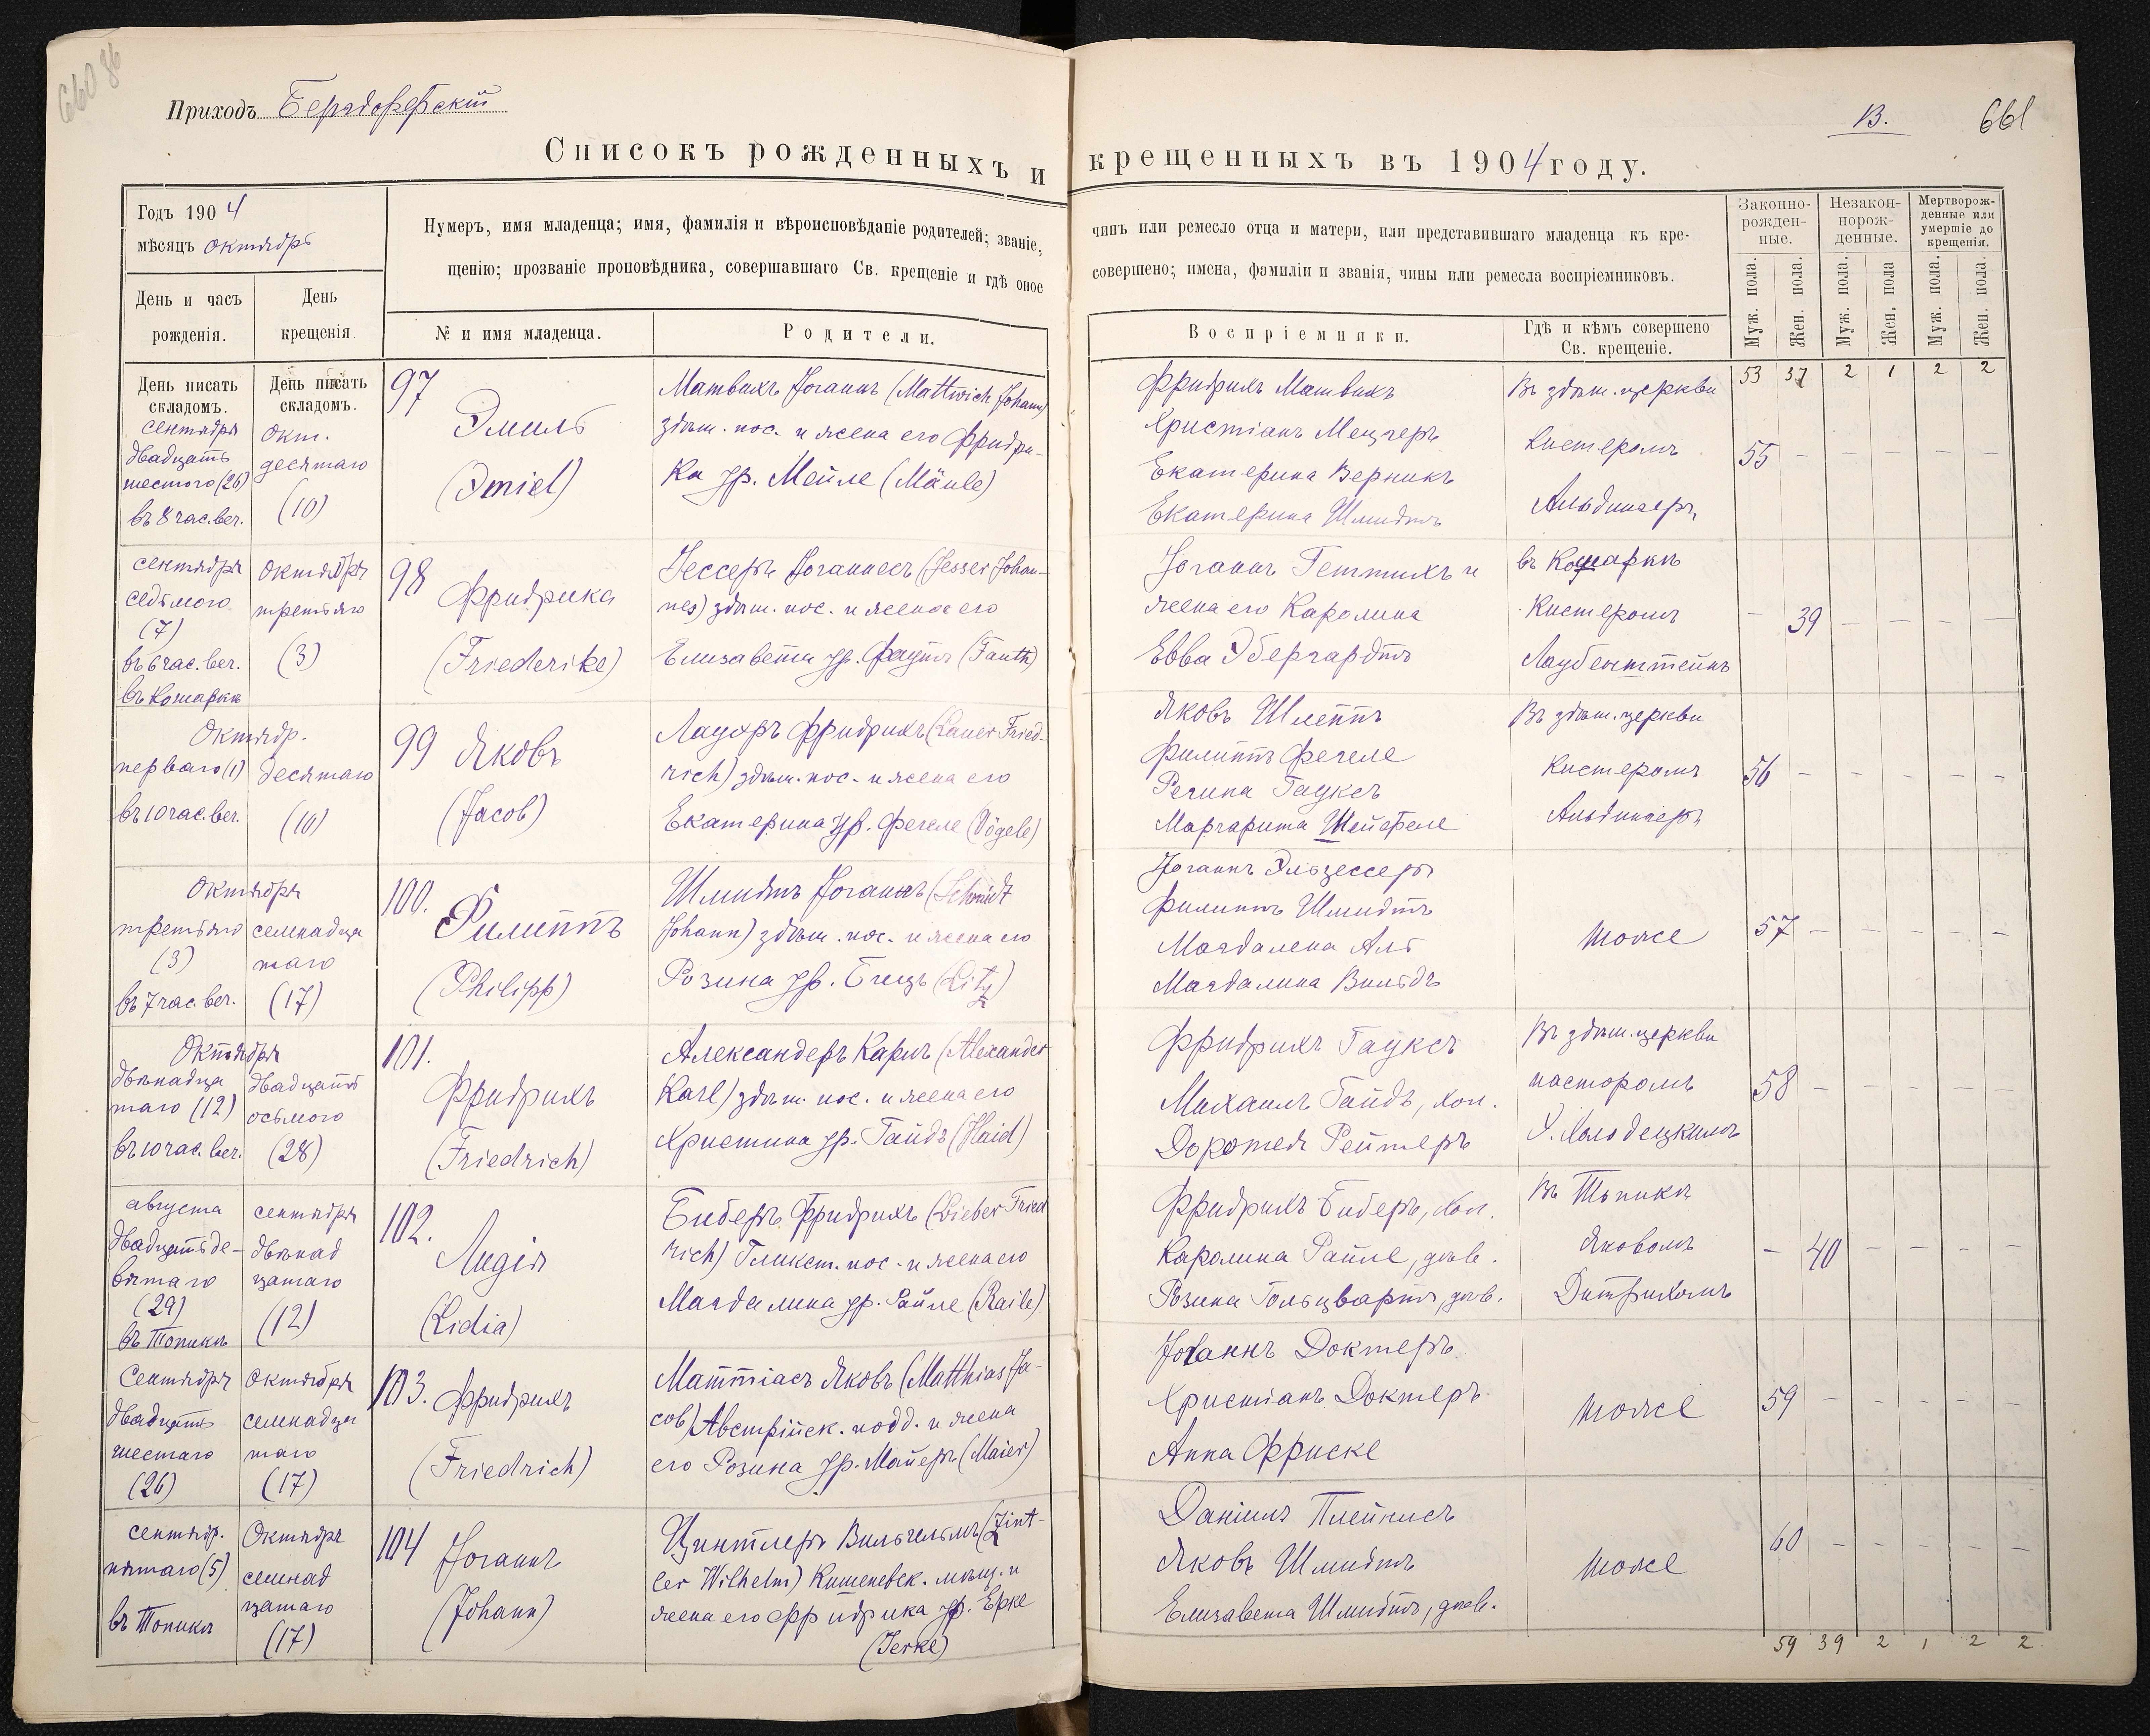 660 об
Приходъ Бергдорфскій
Списокъ рожденныхъ и крещенныхъ въ 1904 году.
В.
661
Годъ 1904
мѣсяцъ октябрь
Нумеръ, имя младенца; имя, фамилія и вѣроисповѣданіе родителей; званіе, чинъ или ремесло отца и матери, или представившаго младенца къ кре-
щенію; прозваніе проповѣдника, совершавшаго Св. крещеніе и гдѣ оное совершено; имена, фамиліи и званія, чины или ремесла воспріемниковъ.
День и часъ рожденія.
День крещенія
№ и имя младенца.
Родители.
Воспріемники.
Гдѣ и кѣмъ совершено
Св. крещеніе.
Законно-
рожден-
ные.
Незакон-
норож-
денные.
Мертворож-
денные или
умершіе до
крещенія.
Муж. пола.
Жен. пола.
Муж. пола.
Жен. пола
Муж. пола.
Жен. пола.
День писать
складомъ.
День писать
складомъ.
53 37 2 1 2 2
сентября
двадцать
шестого (26)
въ 8 час. веч.
окт.
десятаго
(10)
97
Эмиль
(Emiel)
Матвихъ Іоганнъ (Mattwich Johann)
здѣш. пос. и жена его Фридри-
ка ур. Мейле (Mäule)
Фридрихъ Матвихъ
Христіанъ Мецгеръ
Екатерина Верникъ
Екатерина Шмидтъ
Въ здѣш. церкви
Кистеромъ
Альдингеръ
55 - - - - -
сентября
седьмого
(7)
въ 6 час. веч.
въ Кошаркѣ
октября
третьяго
(3)
98
Фридрика
(Friederike)
Іессеръ Іоганнесъ (Jesser Johan-
nes) здѣш. пос. и жена его
Елизавета ур. Фаутъ (Fauth)
Іоганнъ Геттихъ и
жена его Каролина
Евва Эбергардтъ
въ Кошаркѣ
Кистеромъ
Лаубенштейнъ
- 39 - - - -
Октябр.
перваго (1)
въ 10 час. веч.
десятаго
(10)
99 Яковъ
(Jacob)
Лауеръ Фридрихъ (Lauer Fried-
rich) здѣш. пос. и жена его
Екатерина ур. Фегеле (Vögele)
Яковъ Шлеппъ
Филиппъ Фегеле
Регина Гауксъ
Маргарита Шейфеле
Въ здѣш. церкви
Кистеромъ
Альдингеръ
56 - - - - -
Октября
третьяго
(3)
въ 7 час. веч.
семнадца
таго
(17)
100.
Филиппъ
(Philipp)
Шмидтъ Іоганнъ (Schmidt
Johann) здѣш. пос. и жена его
Розина ур. Бицъ (Bitz)
Іоганнъ Эльзессеръ
Филиппъ Шмидтъ
Магдалена Аль
Магдалина Вильдъ
тоже
57 - - - - -
Октября
двѣнадца
таго (12)
въ 10 час. веч.
двадцать
осьмого
(28)
101.
Фридрихъ
(Friedrich)
Александеръ Карлъ (Alexander
Karl) здѣш. пос. и жена его
Христина ур. Гайдъ (Haid)
Фридрихъ Гауксъ
Михаилъ Гайдъ, хол.
Доротея Рейтеръ
Въ здѣш. церкви
пасторомъ
У. Холодецкимъ
58 - - - - -
августа
двадцать де-
вятаго
(29)
въ Топикѣ
сентября
двѣнад
цатаго
(12)
102.
Лидія
(Lidia)
Биберъ Фридрихъ (Bieber Fried
rich) Гликст. пос. и жена его
Магдалина ур. Райле (Raile)
Фридрихъ Биберъ, хол.
Каролина Райле, дѣв.
Розина Гольцвартъ, дѣв.
Въ Топикѣ
Яковомъ
Дитрихомъ
- 40 - - - -
Сентября
двадцать
шестаго
(26)
октября
семнадца
таго
(17)
103. Фридрихъ
(Friedrich)
Маттіасъ Яковъ (Matthias Ja-
cob) Австрійск. подд. и жена
его Розина ур. Майеръ (Maier)
Іоганнъ Доктеръ
Христіанъ Доктеръ
Анна Фриске
тоже
59 - - - - -
сентябр.
пятаго (5)
въ Топикѣ
Октября
семнад
цатаго
(17)
104 Іоганнъ
(Johann)
Цинтлеръ Вильгельмъ (Zint-
ler Wilhelm) Кишеневск. мѣщ. и
жена его Фридрика ур. Ерке
(Jerke)
Даніилъ Плейнисъ
Яковъ Шмидтъ
Елизавета Шмидтъ, дѣв.
тоже
60 - - - - -
59 39 2 1 2 2